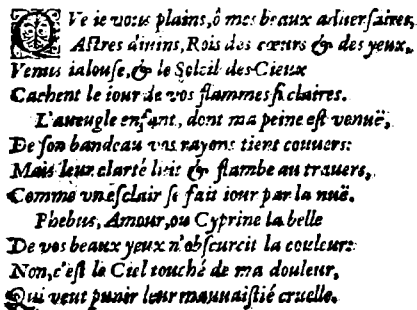 QVe ie vous plains, ô mes beaux aduersaires,
Astres diuins, Rois des cœurs & des yeux,
Venus ialouse, & le Soleil des Cieux
Cachent le iour de vos flammes si claires.
L'aueugle enfant, dont ma peine est venuë,
De son bandeau vos rayons tient couuers:
Mais leur clarté luit & flambe au trauers,
Comme vn esclair se fait iour par la nuë.
Phebus, Amour, ou Cyprine la belle
De vos beaux yeux n'obscurcit la couleur:
Non, c'est le Ciel touché de ma douleur,
Qui veut punir leur mauuaistié cruelle.